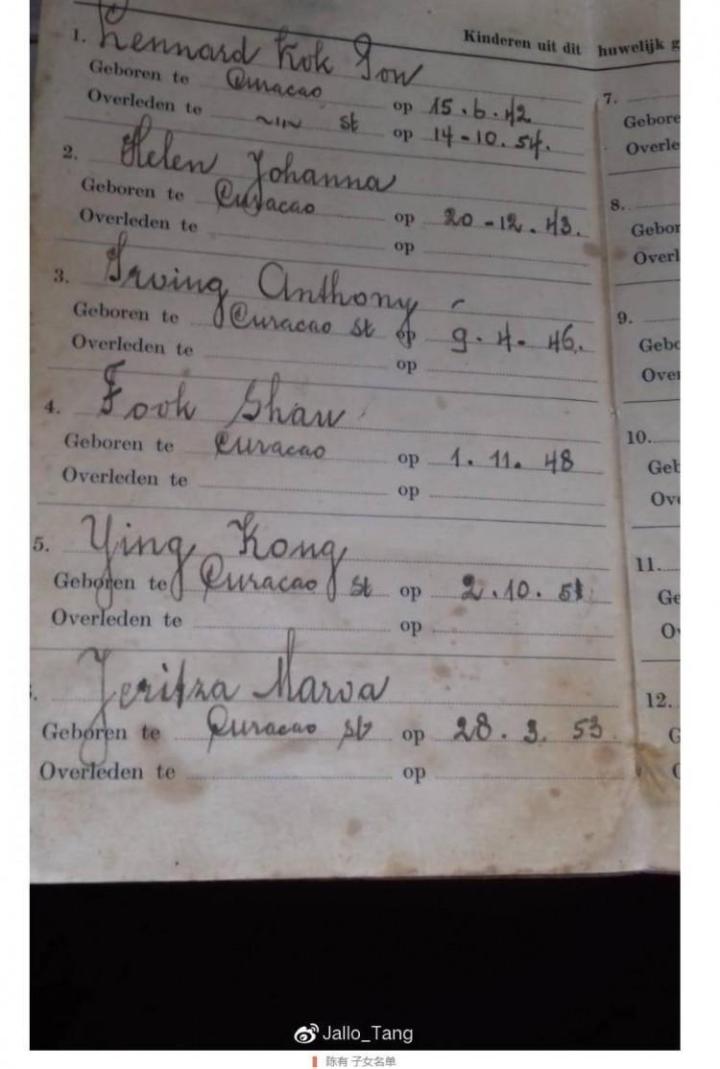 Kinderen uit dit huwelijk g
1. Lennard Kok Son
Geboren te Curacao op 15.6.42
Overleden te ~"~ st op 14-10.54.
2. Helen Johanna
Geboren te Curacao op 20-12.43.
Overleden te op
3. Irving Anthony
Geboren te Curacao st op 9.4-46.
Overleden te op
4. Fook Shaw
Geboren te Curacao op 1.11.48
Overleden te op
5. Ying Kong
Geboren te Curacao st op 2.10.51
Overleden te op
Jeritza Marva
Geboren te Curacao st op 28.3.53
Overleden te op
7.
Gebore
Overle
8.
Gebor
Overl
9.
Gebo
Over
10.
Geb
Ov
11.
Ge
O
12.
G
Jallo_Tang
陈有 子女名单